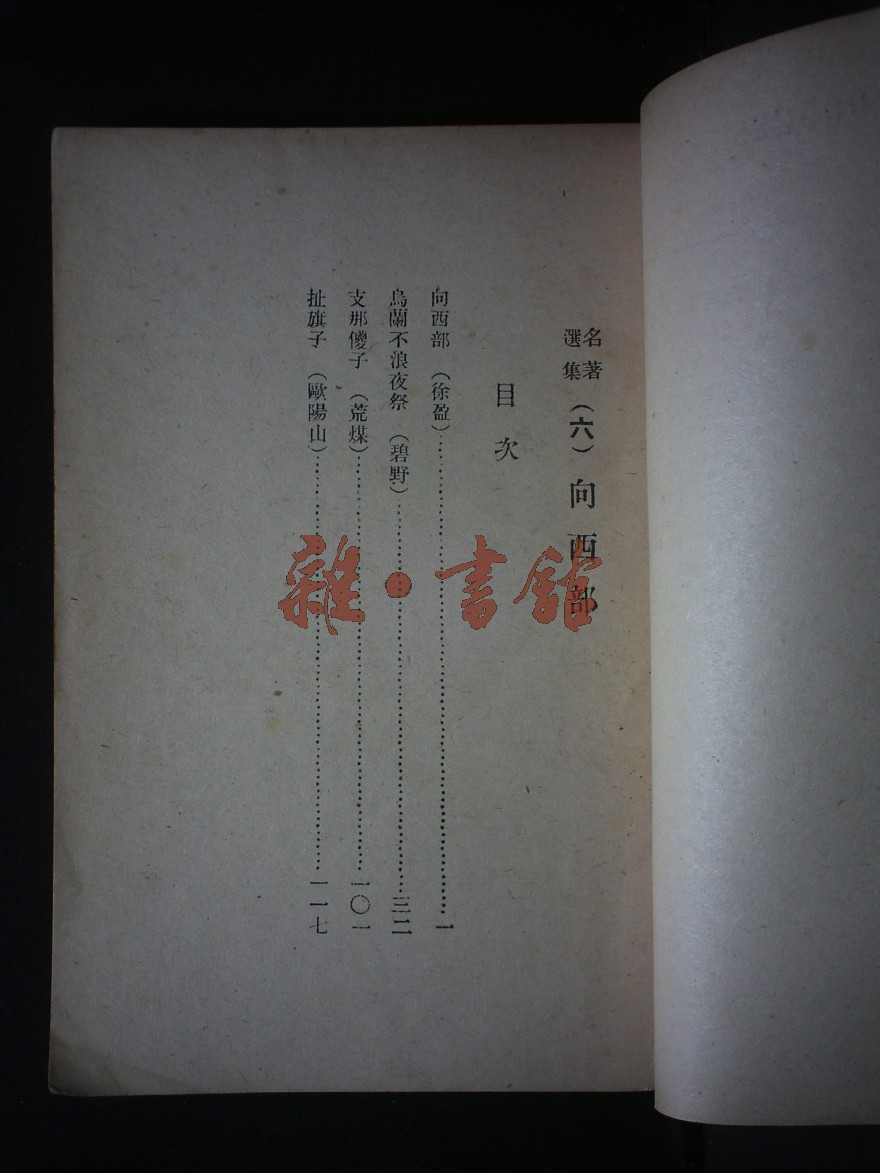 名著選集（六）向西部
目次
向西部（徐盈）…………一
烏蘭不浪夜祭（碧野）…………三二
支那傻子（荒煤）…………一〇一
扯旗子（歐陽山）…………一一七
雜·書館